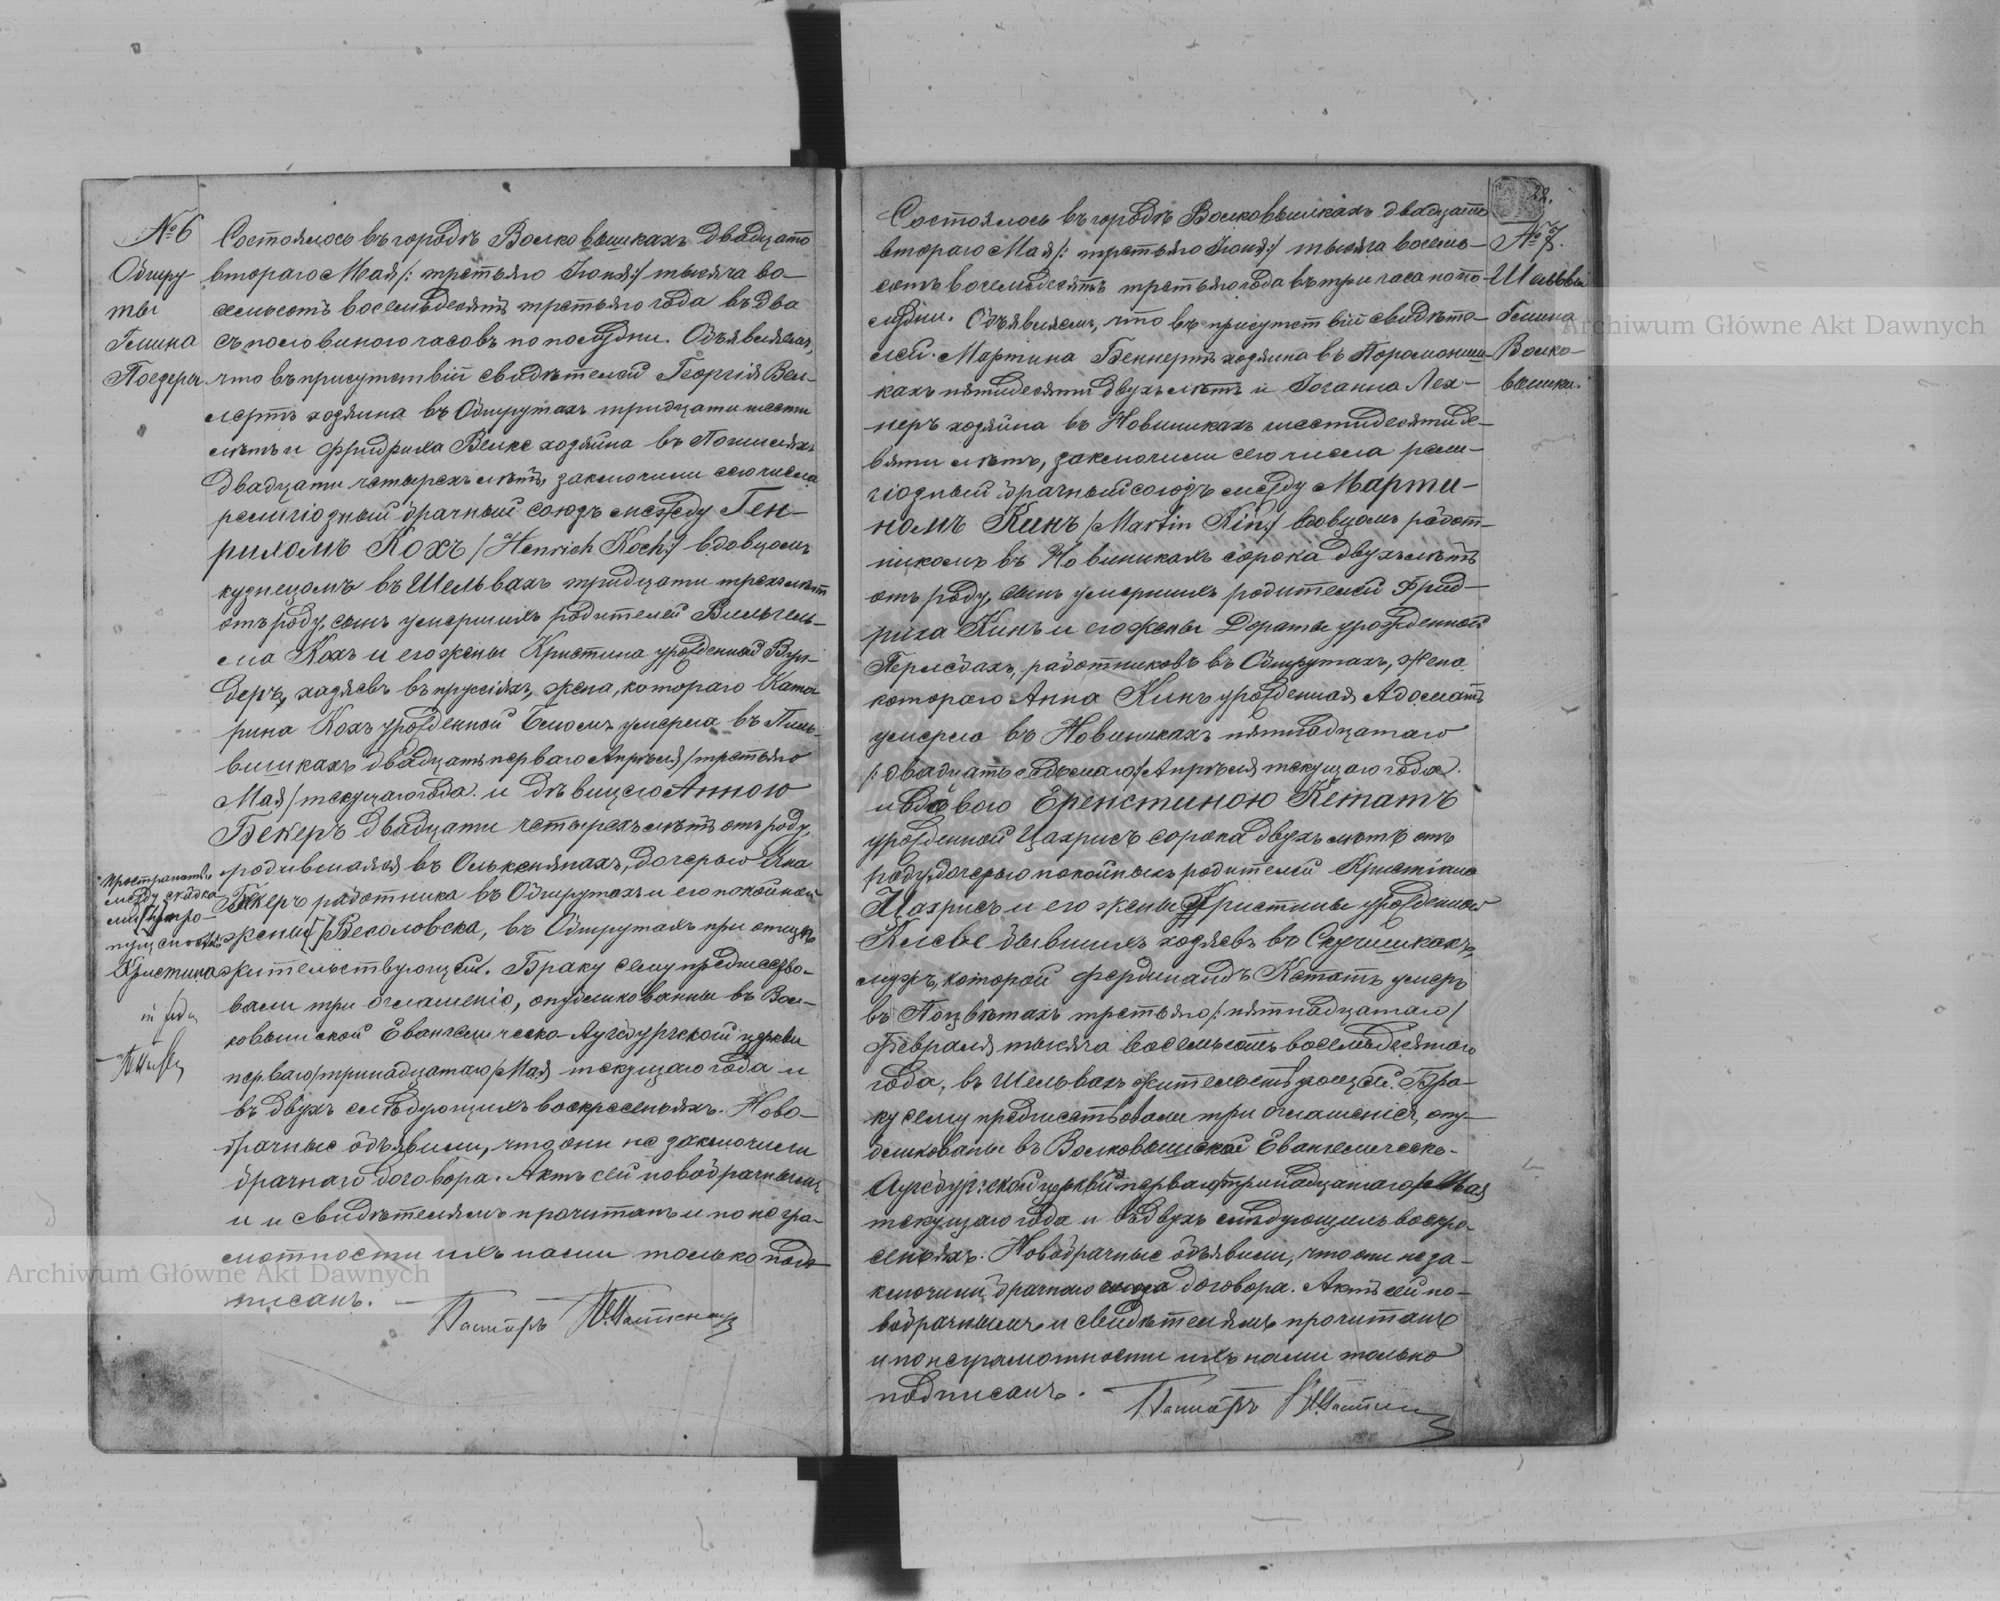 № 6
Обшру-
ты
Гмина
Состоялось въ городѣ Волковышкахъ двадцать
втораго Мая /: третьяго Іюня :/ тысяча во-
семьсотъ восемьдесятъ третьяго года въ два
съ половиною часовъ по полудни. Объявляемъ,
что въ присутствіи свидѣтелей Георгія Вел-
лертъ хозяина въ Обшрутахъ тридцати шести
лѣтъ и Фридриха Велке хозяина въ
двадцати четырехъ лѣтъ, заключили сего числа
религіозный брачный союзъ между Ген-
рихомъ Кохъ /Henrich Koch:/ вдовцомъ
кузнецомъ въ Шельвахъ тридцати трехъ лѣтъ
отъ роду, сынъ умершихъ родителей Вильгель-
ма Кохъ и его жены Кристина урожденной
хозяевъ въ Пруссіяхъ, жена, котораго Ката-
рина Кохъ урожденной умерла въ Пиль-
вишкахъ двадцать перваго Апрѣля /третьяго
Мая/ текущаго года. и дѣвицею Анною
Бекеръ двадцати четырехъ лѣтъ отъ роду,
родившаяся въ Олькснянахъ, дочерью
Бекеръ работника въ Обшрутахъ и его покойной
жены [ ] Весоловска, въ Обшрутахъ при отцѣ
жительствующей. Браку сему предшество-
вали три оглашенія, опубликованны въ Вол-
ковышской Евангелическо-Аугсбургской церкви
перваго/тринадцатаго/Мая текущаго года и
въ двухъ слѣдующихъ воскресеньяхъ. Ново-
брачные объявили, что они не заключили
брачнаго договора. Актъ сей новобрачнымъ
и и свидѣтелямъ прочитанъ и по негра-
мотности ихъ нами только подъ-
писанъ. —
Пасторъ
Пространство
между скобка-
ми [ ] про-
пущено
Кристина
22.
№ 7.
Шельвы
Гмина
Волко-
вышки.
Состоялось въ городѣ Волковышкахъ двадцать
втораго Мая /: третьяго Іюня :/ тысяча восемь-
сотъ восемьдесятъ третьяго года въ три часа по по-
лудни. Объявляемъ, что въ присутствіи свидѣте-
лей. Мартина Беннертъ хозяина въ
кахъ пятидесяти двухъ лѣтъ и Іоганна Лех-
неръ хозяина въ Новиникахъ шестидесяти де-
вяти лѣтъ, заключили сего числа рели-
гіозный брачный союзъ между Марти-
номъ Кинъ /Martin Kin:/ вдовцомъ работ-
никомъ въ Новиникахъ сорока двухъ лѣтъ
отъ роду, сынъ умершихъ родителей Фрид-
риха Кинъ и его жены Дораты урожденной
работниковъ въ Обшрутахъ, жена
котораго Анна Кинъ урожденная Адоматъ
умерла въ Новиникахъ пятнадцатаго
/: двадцать седьмаго/ Апрѣля текущаго года.
и вдовою Еренстиною Кематъ
урожденной Цахрисъ сорока двухъ лѣтъ отъ
роду, дочерью покойныхъ родителей Кристіана
Цахрисъ и его жены Кристины урожденной
бывшихъ хозяевъ въ
мужъ, которой Фердинандъ Кематъ умеръ
въ Поцвѣтахъ третьяго /: пятнадцатаго/
Февраля тысяча восемьсотъ восемьдесятаго
года, въ Шельвахъ жительствующей. Бра-
ку сему предшествовали три оглашенія, опу-
бликованы въ Волковышской Евангелическо-
Аугсбургской церкви перваго/тринадцатаго/Мая
текущаго года и въ двухъ слѣдующихъ воскре-
сеньяхъ. Новобрачные объявили, что они не за-
ключили брачнаго договора. Актъ сей но-
вобрачнымъ и свидѣтелямъ прочитанъ
и по неграмотности ихъ нами только
подписанъ.
Пасторъ
Archiwum Główne Akt Dawnych
Archiwum Główne Akt Dawnych